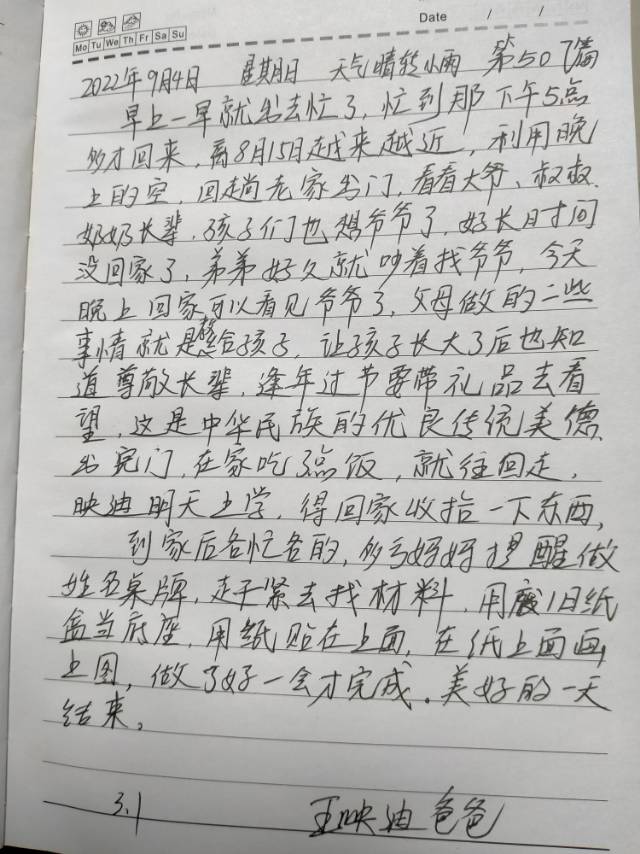 Date / /
Mo Tu We Th Fr Sa Su
2022年9月4日 星期日 天气晴转小雨 第507篇
早上一早就出去忙了，忙到那下午5点
多才回来，离8月15日越来越近，利用晚
上的空，回趟老家出门，看看大爷、叔叔、
奶奶长辈，孩子们也想爷爷了，好长时间
没回家了，弟弟好久就吵着找爷爷，今天
晚上回家可以看见爷爷了，父母做的一些
事情就是教给孩子，让孩子长大了后也知
道尊敬长辈，逢年过节要带礼品去看
望，这是中华民族的优良传统美德，
出完门，在家吃点饭，就往回走，
映迪明天上学，得回家收拾一下东西，
到家后各忙各的，多亏妈妈提醒做
姓名桌牌，赶紧去找材料，用废旧纸
盒当底座，用纸贴在上面，在纸上面画
上图，做了好一会才完成。美好的一天
结束。
3.1 王映迪爸爸